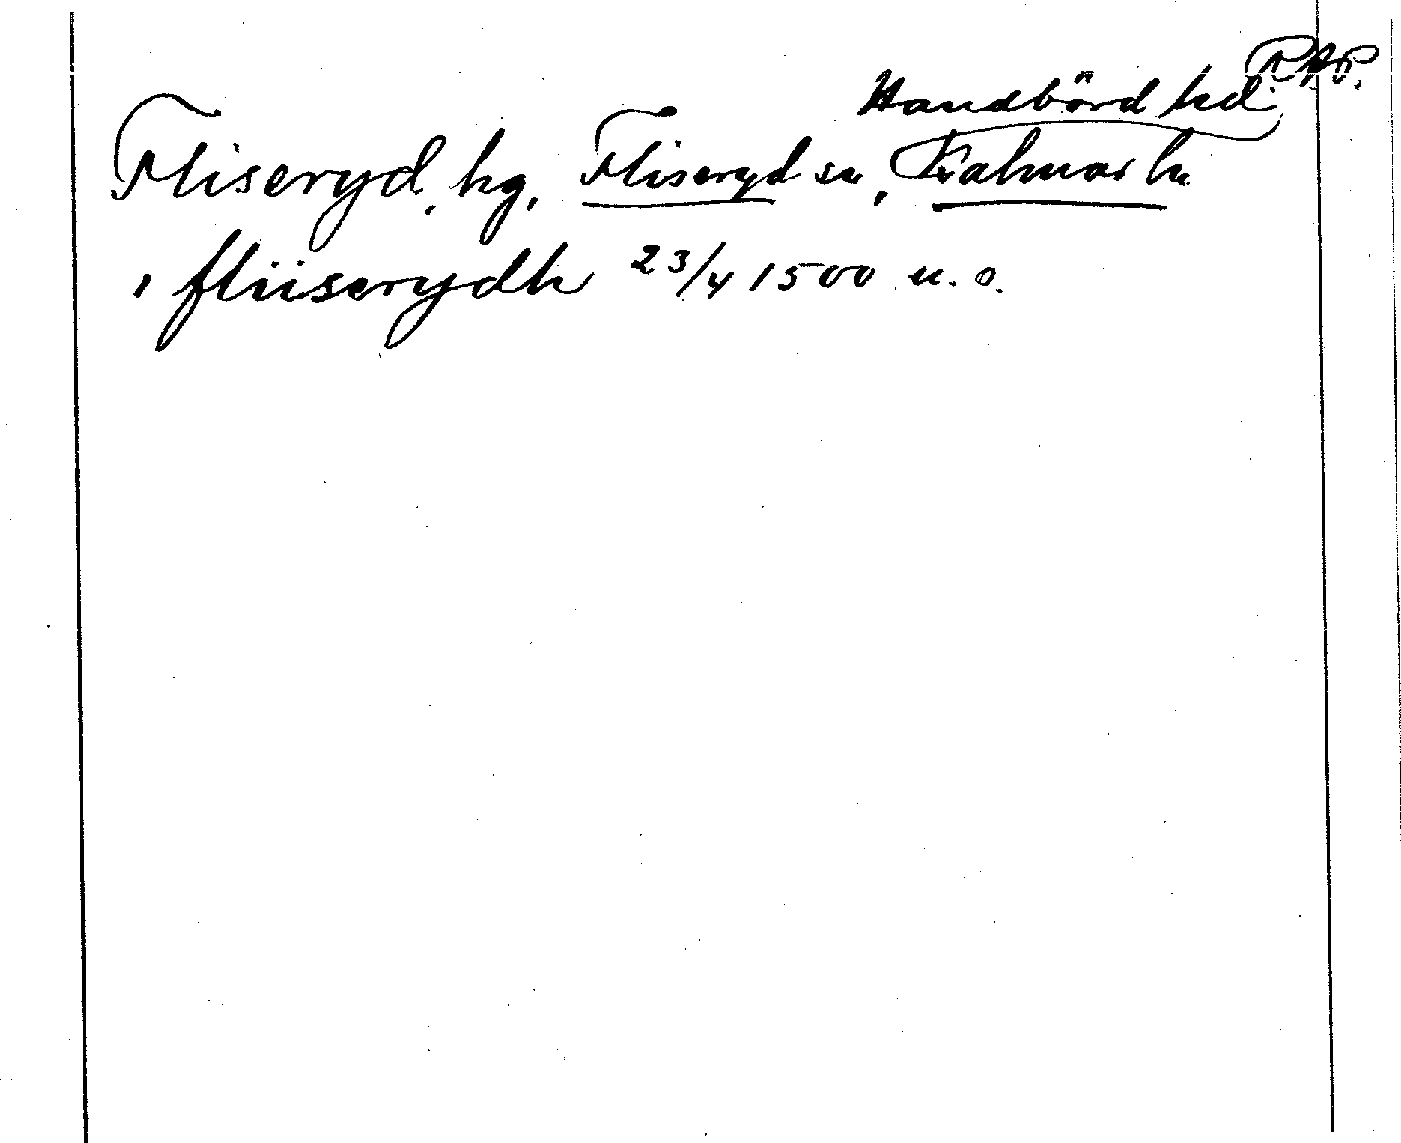 R.A.P.
Handbörd hd
Fliseryd, hg, Fliseryd sn, Kalmar ln
, fliiserydh 23/4 1500 u. o.